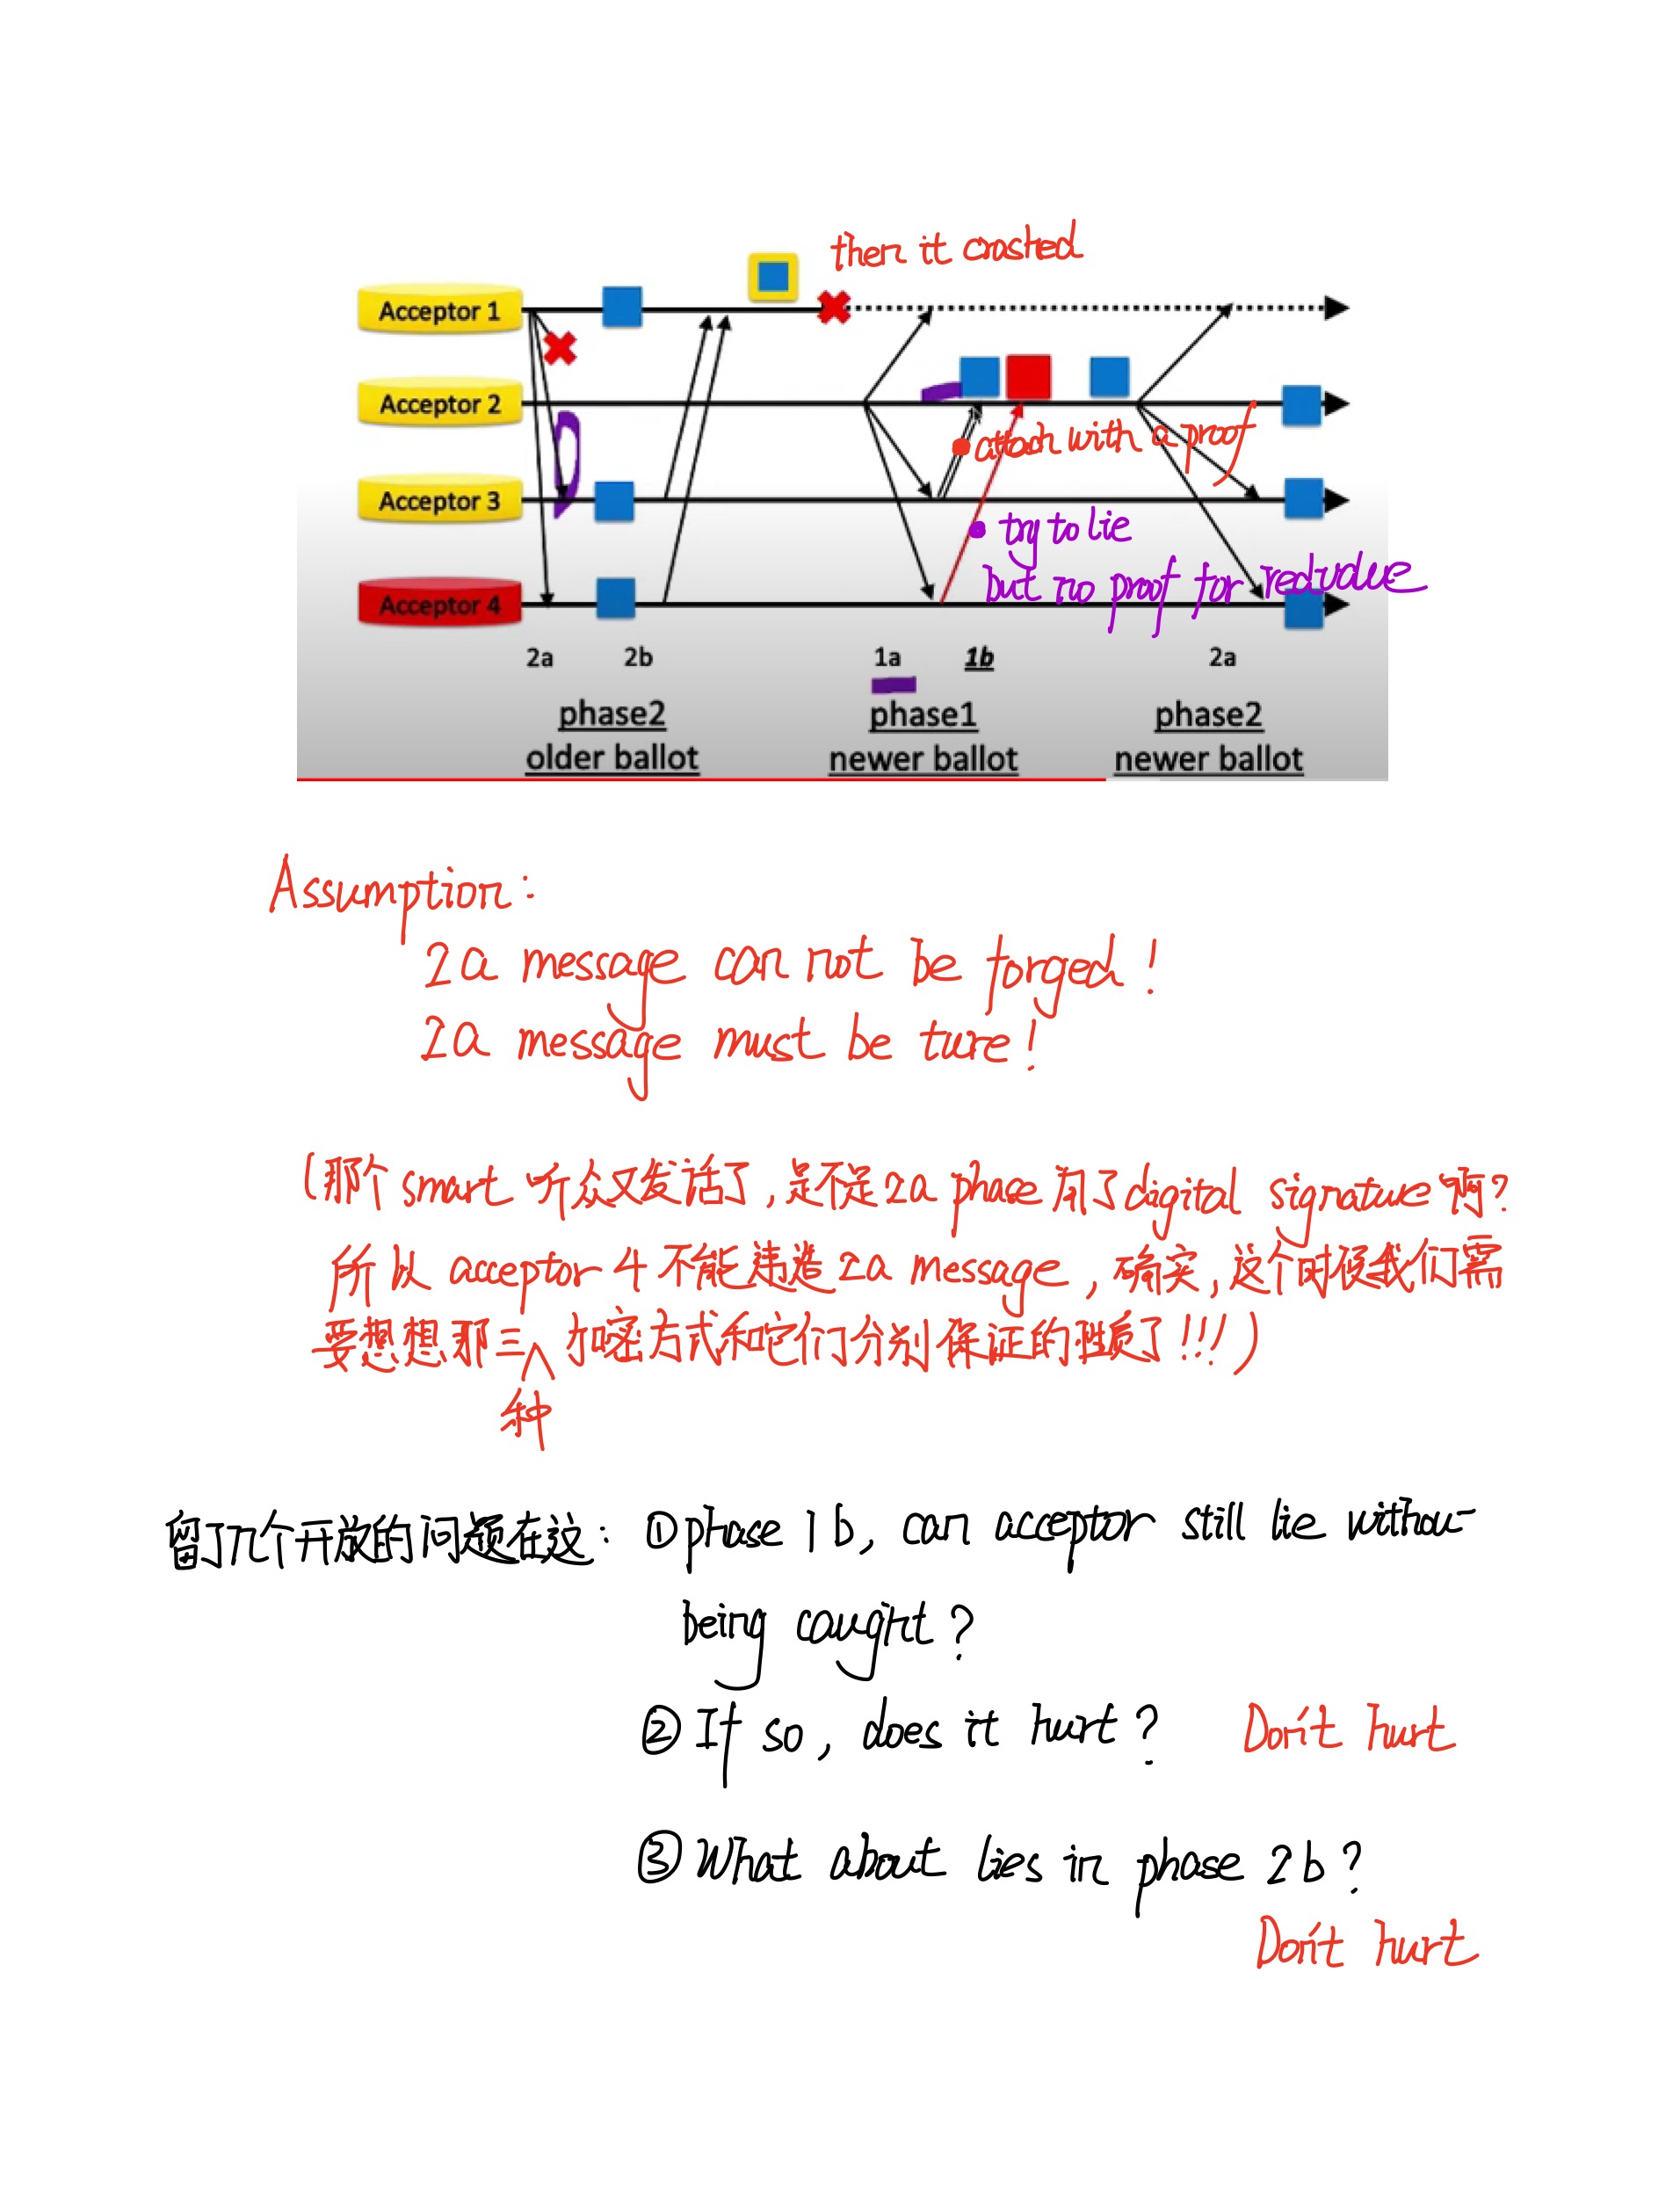 then it crashed
Acceptor 1
Acceptor 2
attach with a proof
Acceptor 3
try to lie
but no proof for redvalue
Acceptor 4
2a 2b 1a 1b 2a
phase2 phase1 phase2
older ballot newer ballot newer ballot
Assumption:
2a message can not be forged!
2a message must be ture!
(那个 smart 听众又发话了,是不是 2a phase 用了 digital signature 啊?
所以 acceptor 4 不能违造 2a message, 确实,这个时候我们需
要想想那三种加密方式和它们分别保证的性质了!!!)
留了几个开放的问题在这: ① phase 1b, can acceptor still lie withou
being caught?
② If so, does it hurt? Don't hurt
③ What about lies in phase 2b?
Don't hurt